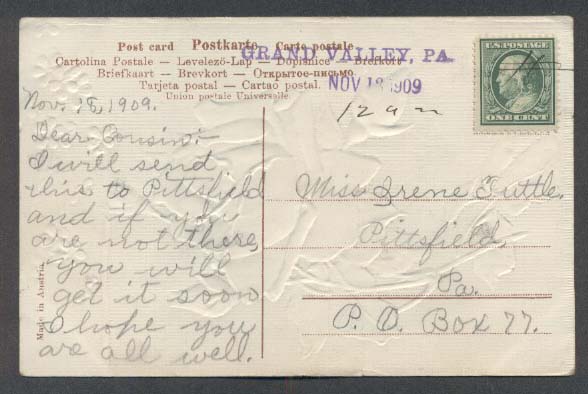 Post card Postkarte Carte postale
Cartolina Postale — Levelező-Lap — Dopisnice — Brefkort
Briefkaart — Brevkort — Открытое-письмо
Tarjeta postal — Cartao postal.
Union postale Universelle.
GRAND VALLEY, PA.
NOV 18 1909
12 a m
U.S. POSTAGE
ONE CENT
Nov. 18, 1909.
Dear Cousin:-
I will send
this to Pittsfield
and if you
are not there
you will
get it soon
I hope you
are all well.
Made in Austria.
Miss Irene Tuttle,
Pittsfield,
Pa.
P. O. Box 77.